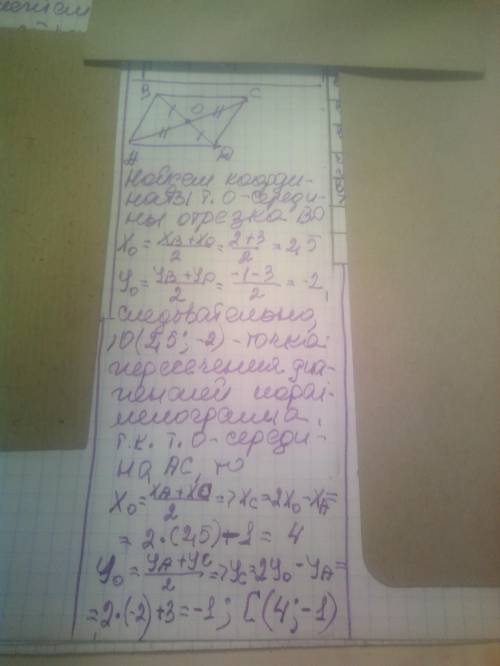 B
O
C
A
D
Найдем коорди-
наты т. O - середи-
ны отрезка BD
X₀ = (X_B + X_D)/2 = (2+3)/2 = 2,5
Y₀ = (Y_B + Y_D)/2 = (-1-3)/2 = -2,
следовательно,
O(2,5; -2) - точка
пересечения диа-
гоналей парал-
лелограмма,
т.к. т. O - середи-
на AC, то
X₀ = (X_A + X_C)/2 => X_C = 2X₀ - X_A =
= 2·(2,5) - 1 = 4
Y₀ = (Y_A + Y_C)/2 => Y_C = 2Y₀ - Y_A =
= 2·(-2) + 3 = -1; C(4; -1)